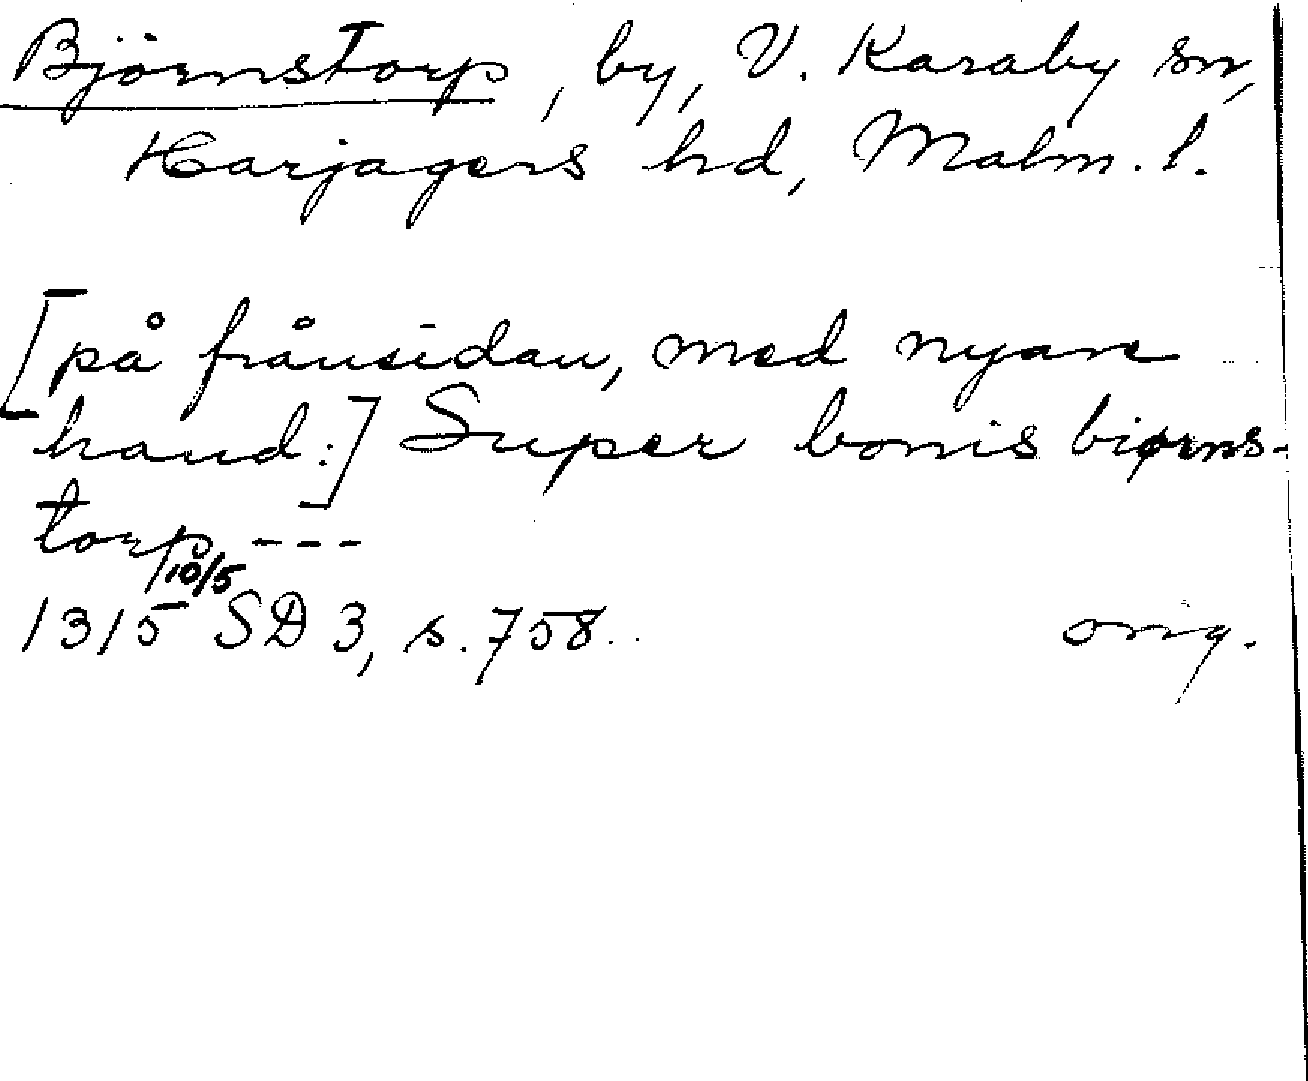 Björnstorp, by, V. Karaby sn,
Harjagers hd, Malm. l.
[på frånsidan, med nyare
hand:] Super bonis biørns-
torp ---
10/5
1315 SD 3, s. 758. orig.